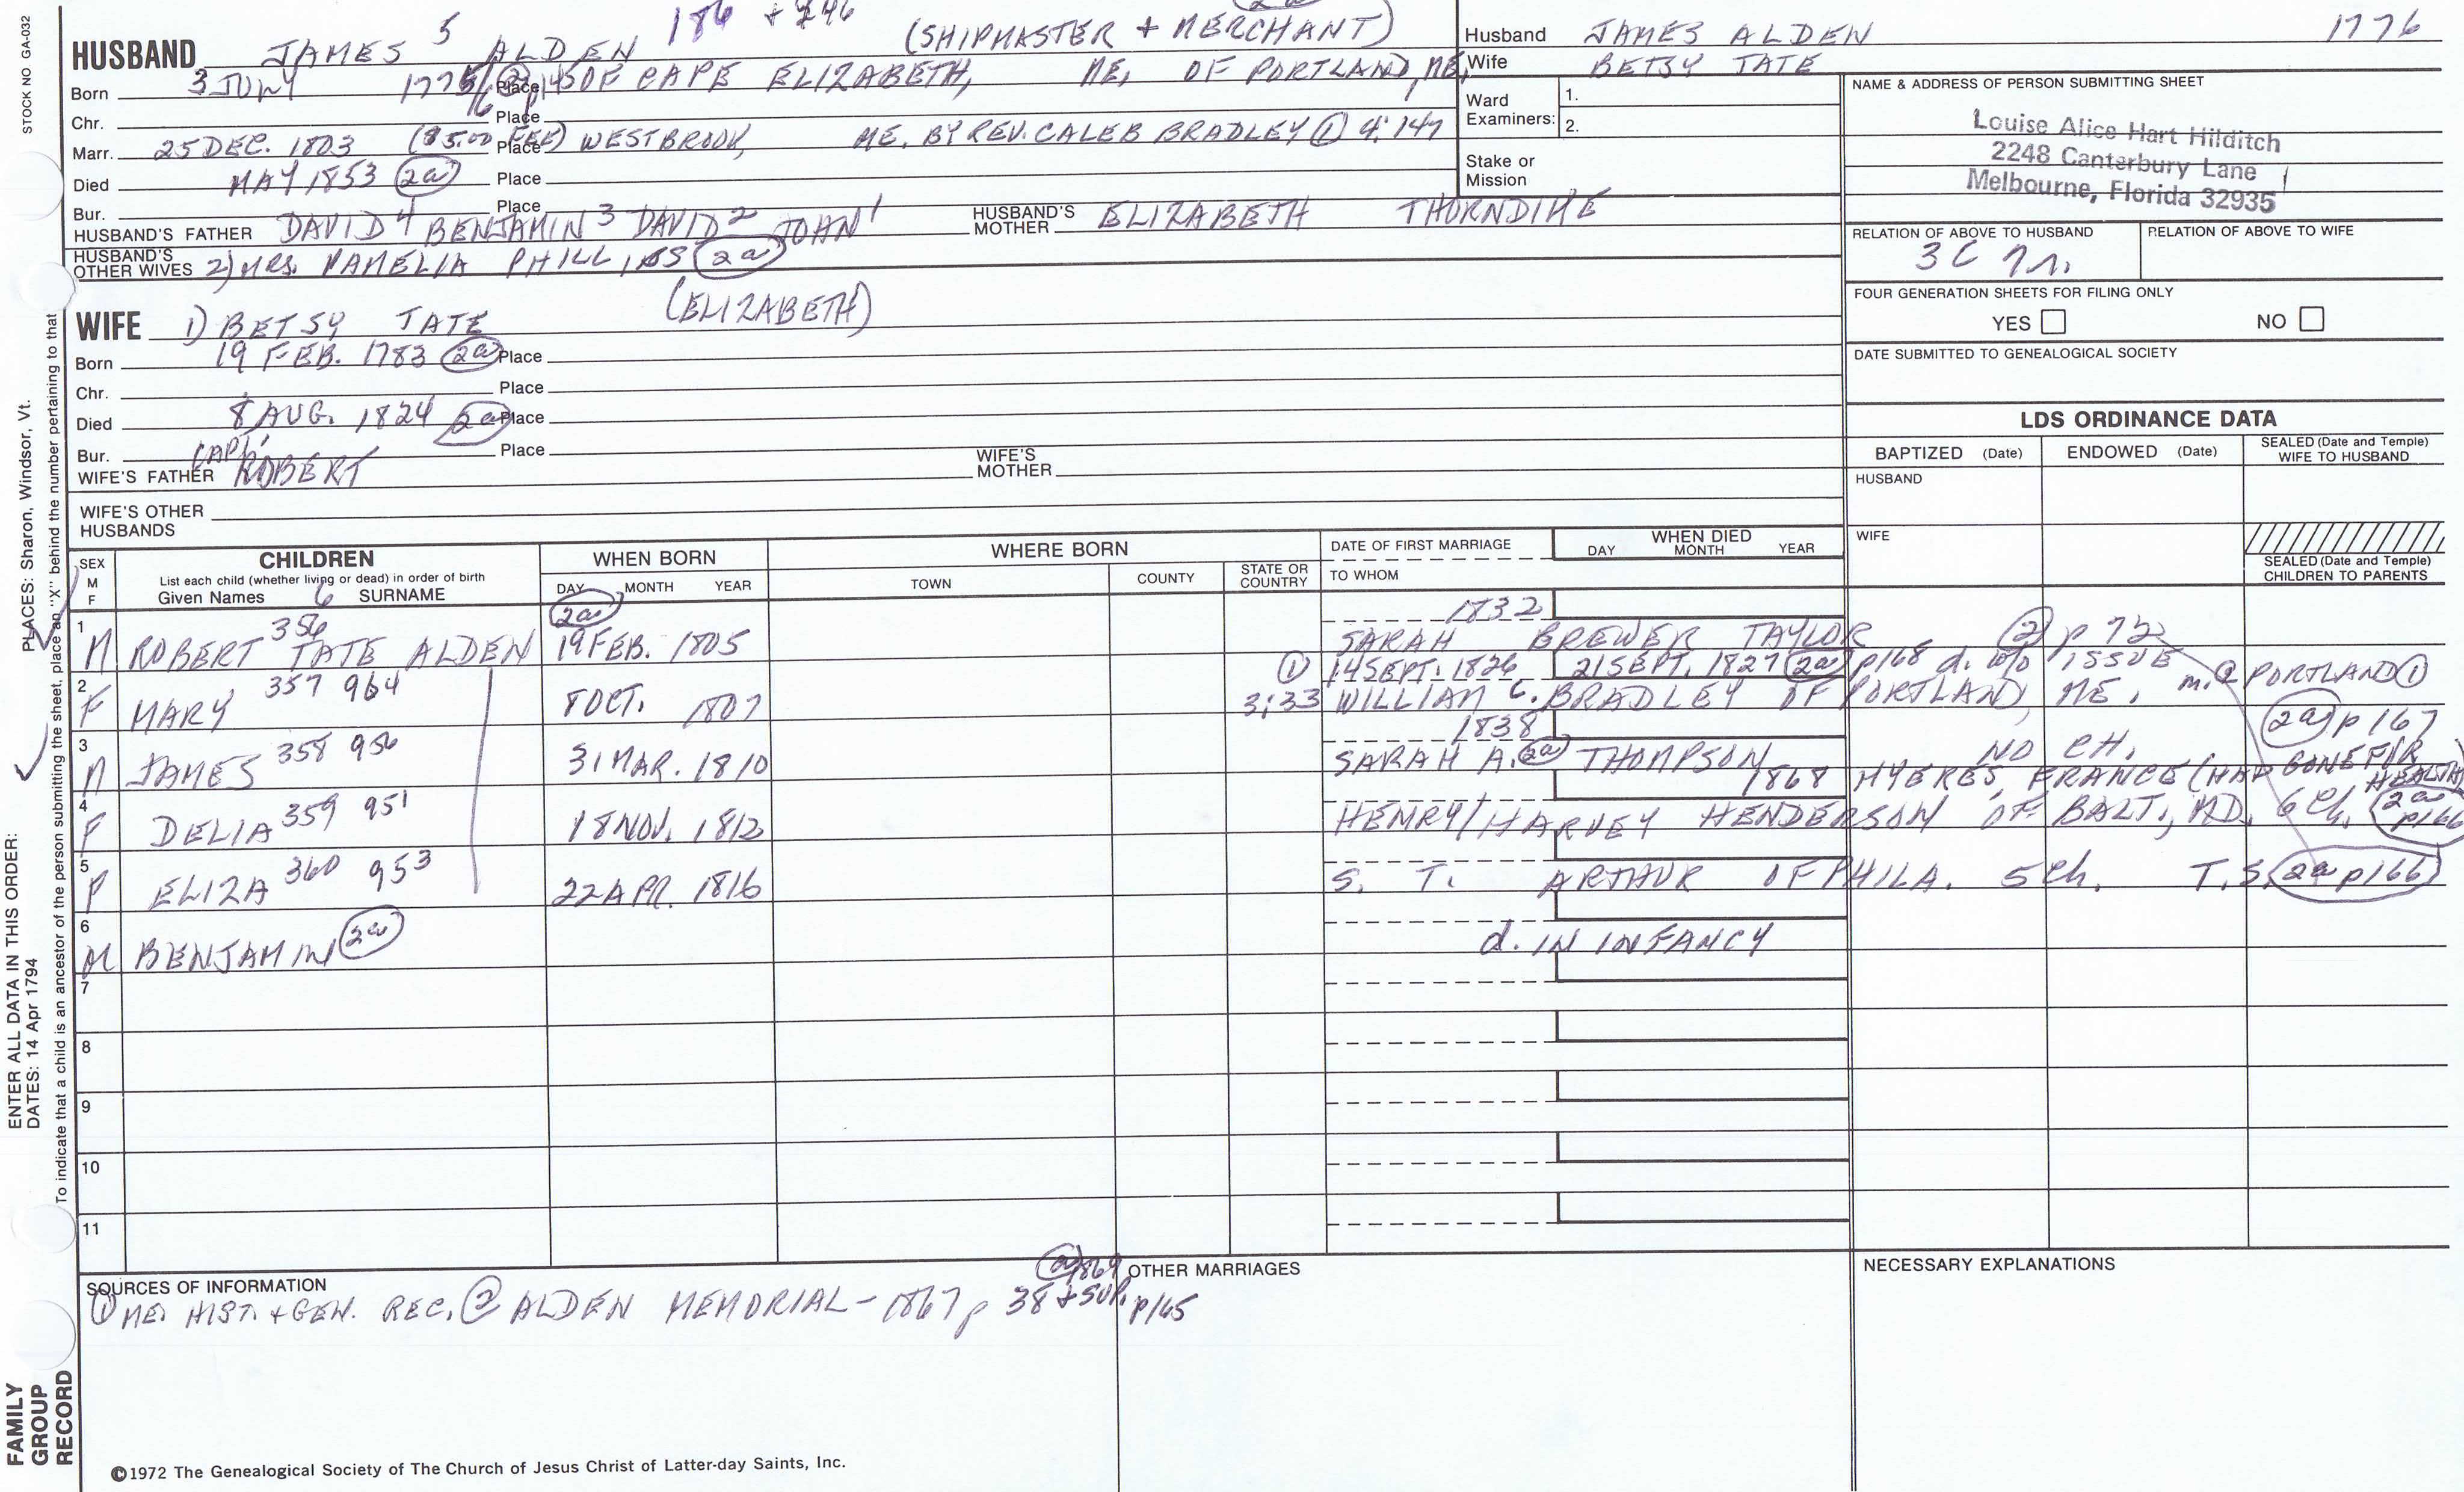 STOCK NO GA-032
186 + 246
HUSBAND JAMES 5 ALDEN (SHIPMASTER + MERCHANT)
Born 3 JULY 1775/6 (2a) p145 Place OF CAPE ELIZABETH, ME, OF PORTLAND, ME,
Chr. Place
Marr. 25 DEC. 1803 ($5.00 FEE) Place WESTBROOK, ME. BY REV. CALEB BRADLEY (1) 4:147
Died MAY 1853 (2a) Place
Bur. Place
HUSBAND'S FATHER DAVID 4 BENJAMIN 3 DAVID 2 JOHN 1 HUSBAND'S MOTHER ELIZABETH THORNDIKE
HUSBAND'S OTHER WIVES 2) MRS. PAMELIA PHILLIPS (2a)
Husband JAMES ALDEN 1776
Wife BETSY TATE
Ward Examiners: 1.
2.
Stake or Mission
NAME & ADDRESS OF PERSON SUBMITTING SHEET
Louise Alice Hart Hilditch
2248 Canterbury Lane
Melbourne, Florida 32935
RELATION OF ABOVE TO HUSBAND RELATION OF ABOVE TO WIFE
3C
FOUR GENERATION SHEETS FOR FILING ONLY
YES NO
DATE SUBMITTED TO GENEALOGICAL SOCIETY
WIFE 1) BETSY TATE (ELIZABETH)
Born 19 FEB. 1783 (2a) Place
Chr. Place
Died 8 AUG. 1824 (2a) Place
Bur. Place
WIFE'S FATHER CAPT. ROBERT WIFE'S MOTHER
WIFE'S OTHER HUSBANDS
LDS ORDINANCE DATA
BAPTIZED (Date) ENDOWED (Date) SEALED (Date and Temple) WIFE TO HUSBAND
HUSBAND
WIFE
SEALED (Date and Temple) CHILDREN TO PARENTS
SEX M F CHILDREN List each child (whether living or dead) in order of birth Given Names 6 SURNAME
WHEN BORN DAY MONTH YEAR
WHERE BORN TOWN COUNTY STATE OR COUNTRY
DATE OF FIRST MARRIAGE TO WHOM
WHEN DIED DAY MONTH YEAR
(2a) 1832
1 M ROBERT 356 TATE ALDEN 19 FEB. 1805 SARAH BREWER TAYLOR (2) p 72
(1) 14 SEPT. 1826 21 SEPT. 1827 (2a) p168 d. w/o ISSUE m. @ PORTLAND (1)
2 F MARY 357 964 8 OCT. 1807 3:33 WILLIAM C. BRADLEY OF PORTLAND, ME.
1838 (2a) p 167
3 M JAMES 358 956 31 MAR. 1810 SARAH A. (2a) THOMPSON NO CH.
1868 HYERES, FRANCE (HAD GONE FOR HEALTH)
4 F DELIA 359 951 18 NOV. 1812 HENRY/HARVEY HENDERSON OF BALT., MD. 6 Ch. (2a p166
5 F ELIZA 360 953 22 APR. 1816 S. T. ARTHUR OF PHILA. 5 Ch. T.S. (2a p166)
6 M BENJAMIN (2a) d. IN INFANCY
7
8
9
10
11
SOURCES OF INFORMATION
(1) ME. HIST. + GEN. REC. (2) ALDEN MEMORIAL - 1867 p 38 + SUP. (a) 1869 p165
OTHER MARRIAGES
NECESSARY EXPLANATIONS
©1972 The Genealogical Society of The Church of Jesus Christ of Latter-day Saints, Inc.
FAMILY GROUP RECORD
ENTER ALL DATA IN THIS ORDER:
DATES: 14 Apr 1794
PLACES: Sharon, Windsor, Vt.
To indicate that a child is an ancestor of the person submitting the sheet, place an "X" behind the number pertaining to that